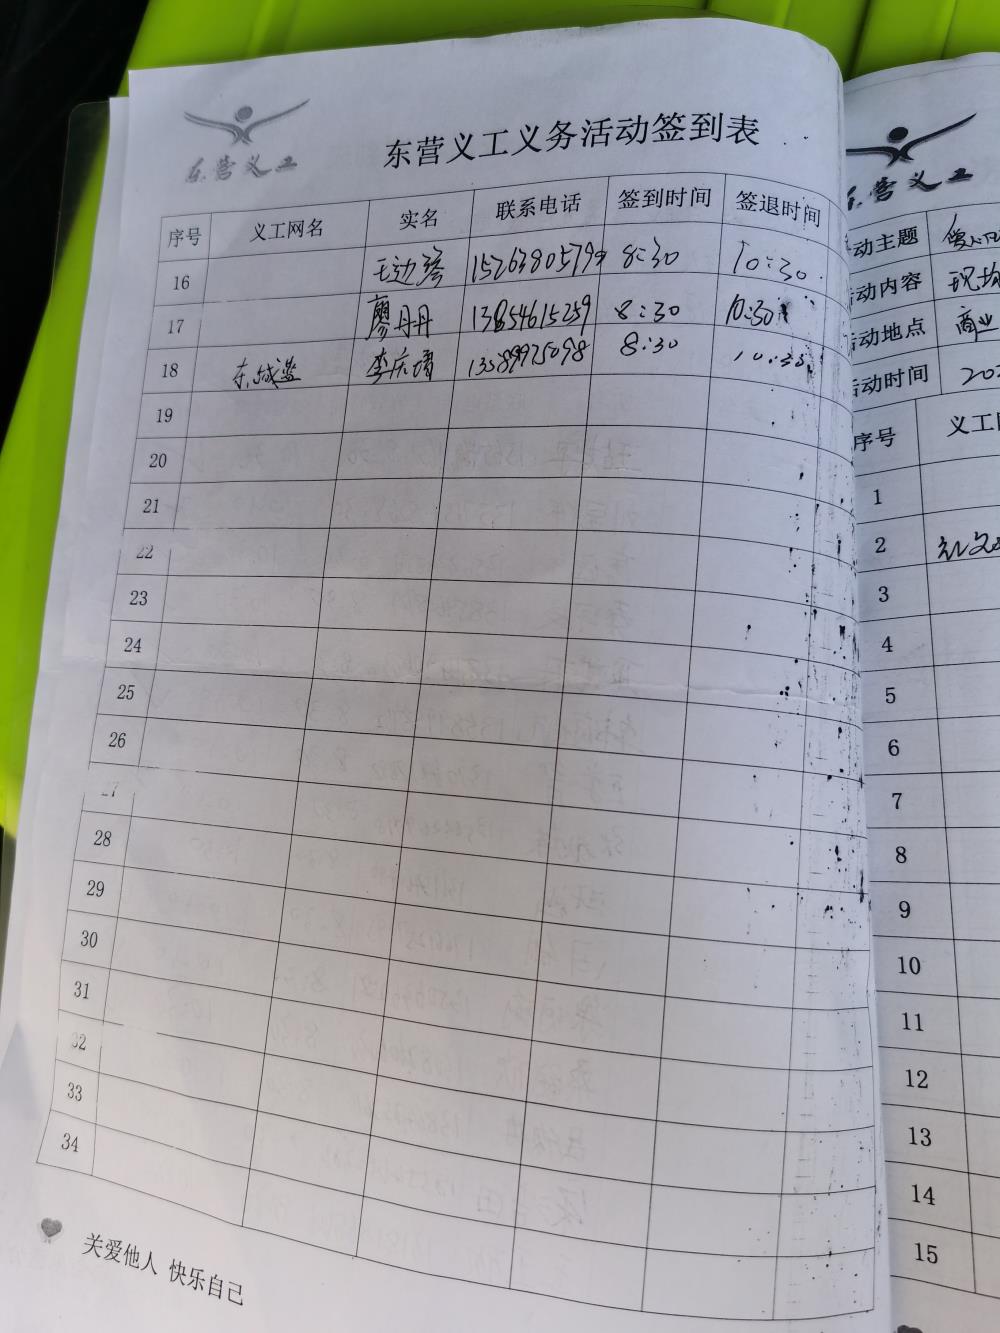 东营义工
东营义工义务活动签到表
序号 义工网名 实名 联系电话 签到时间 签退时间
16 8:30 10:30
17 廖丹丹 13854615259 8:30 10:30
18 13589975098 8:30 10:30
19
20
21
22
23
24
25
26
27
28
29
30
31
32
33
34
关爱他人 快乐自己
东营义工
动主题
活动内容 现场
活动地点 商业
活动时间 202
序号 义工
1
2
3
4
5
6
7
8
9
10
11
12
13
14
15